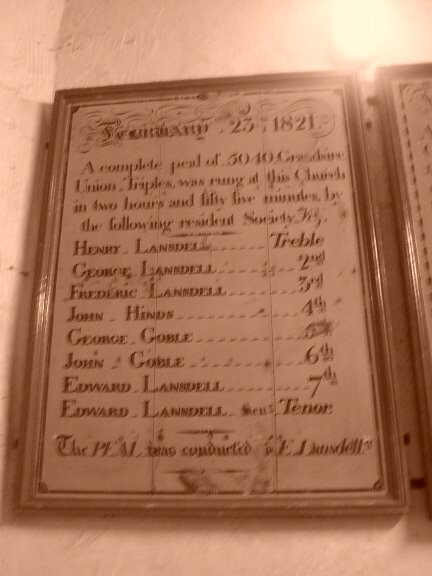 FEBRUARY 23, 1821.
A complete peal of 5040 Grandsire
Union Triples, was rung at this Church
in two hours and fifty five minutes, by
the following resident Society, Viz,
HENRY LANSDELL Treble
GEORGE LANSDELL 2nd
FREDERIC LANSDELL 3rd
JOHN HINDS 4th
GEORGE GOBLE 5th
JOHN GOBLE 6th
EDWARD LANSDELL 7th
EDWARD LANSDELL Senr Tenor
The PEAL was conducted by E. Lansdell Sr